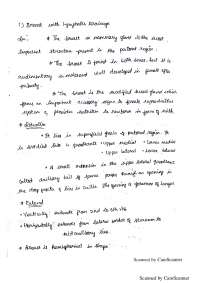 1) Breast with lymphatic drainage
* The breast or mammary gland is the most
important structure present in the pectoral region.
* The breast is found in both sexes, but it is
rudimentary in male and well developed in female after
puberty.
* The breast is the modified sweat gland which
forms an important accessory organ to female reproductive
system &, provides nutrition to newborn in form of milk
* Situation
* It lies in superficial fascia of pectoral region. It
is divided into 4 quadrants Upper medial Lower medial
Upper lateral Lower lateral
* A small extension in the upper lateral quadrant
called axillary tail of passes through an opening in
the deep fascia & lies in axilla. The opening is of
* Extent
* Vertically extends from 2nd to 6th rib
* Horizontally extends from lateral border of sternum to
midaxillary line.
* Breast is hemispherical in shape
Scanned by CamScanner
Scanned by CamScanner